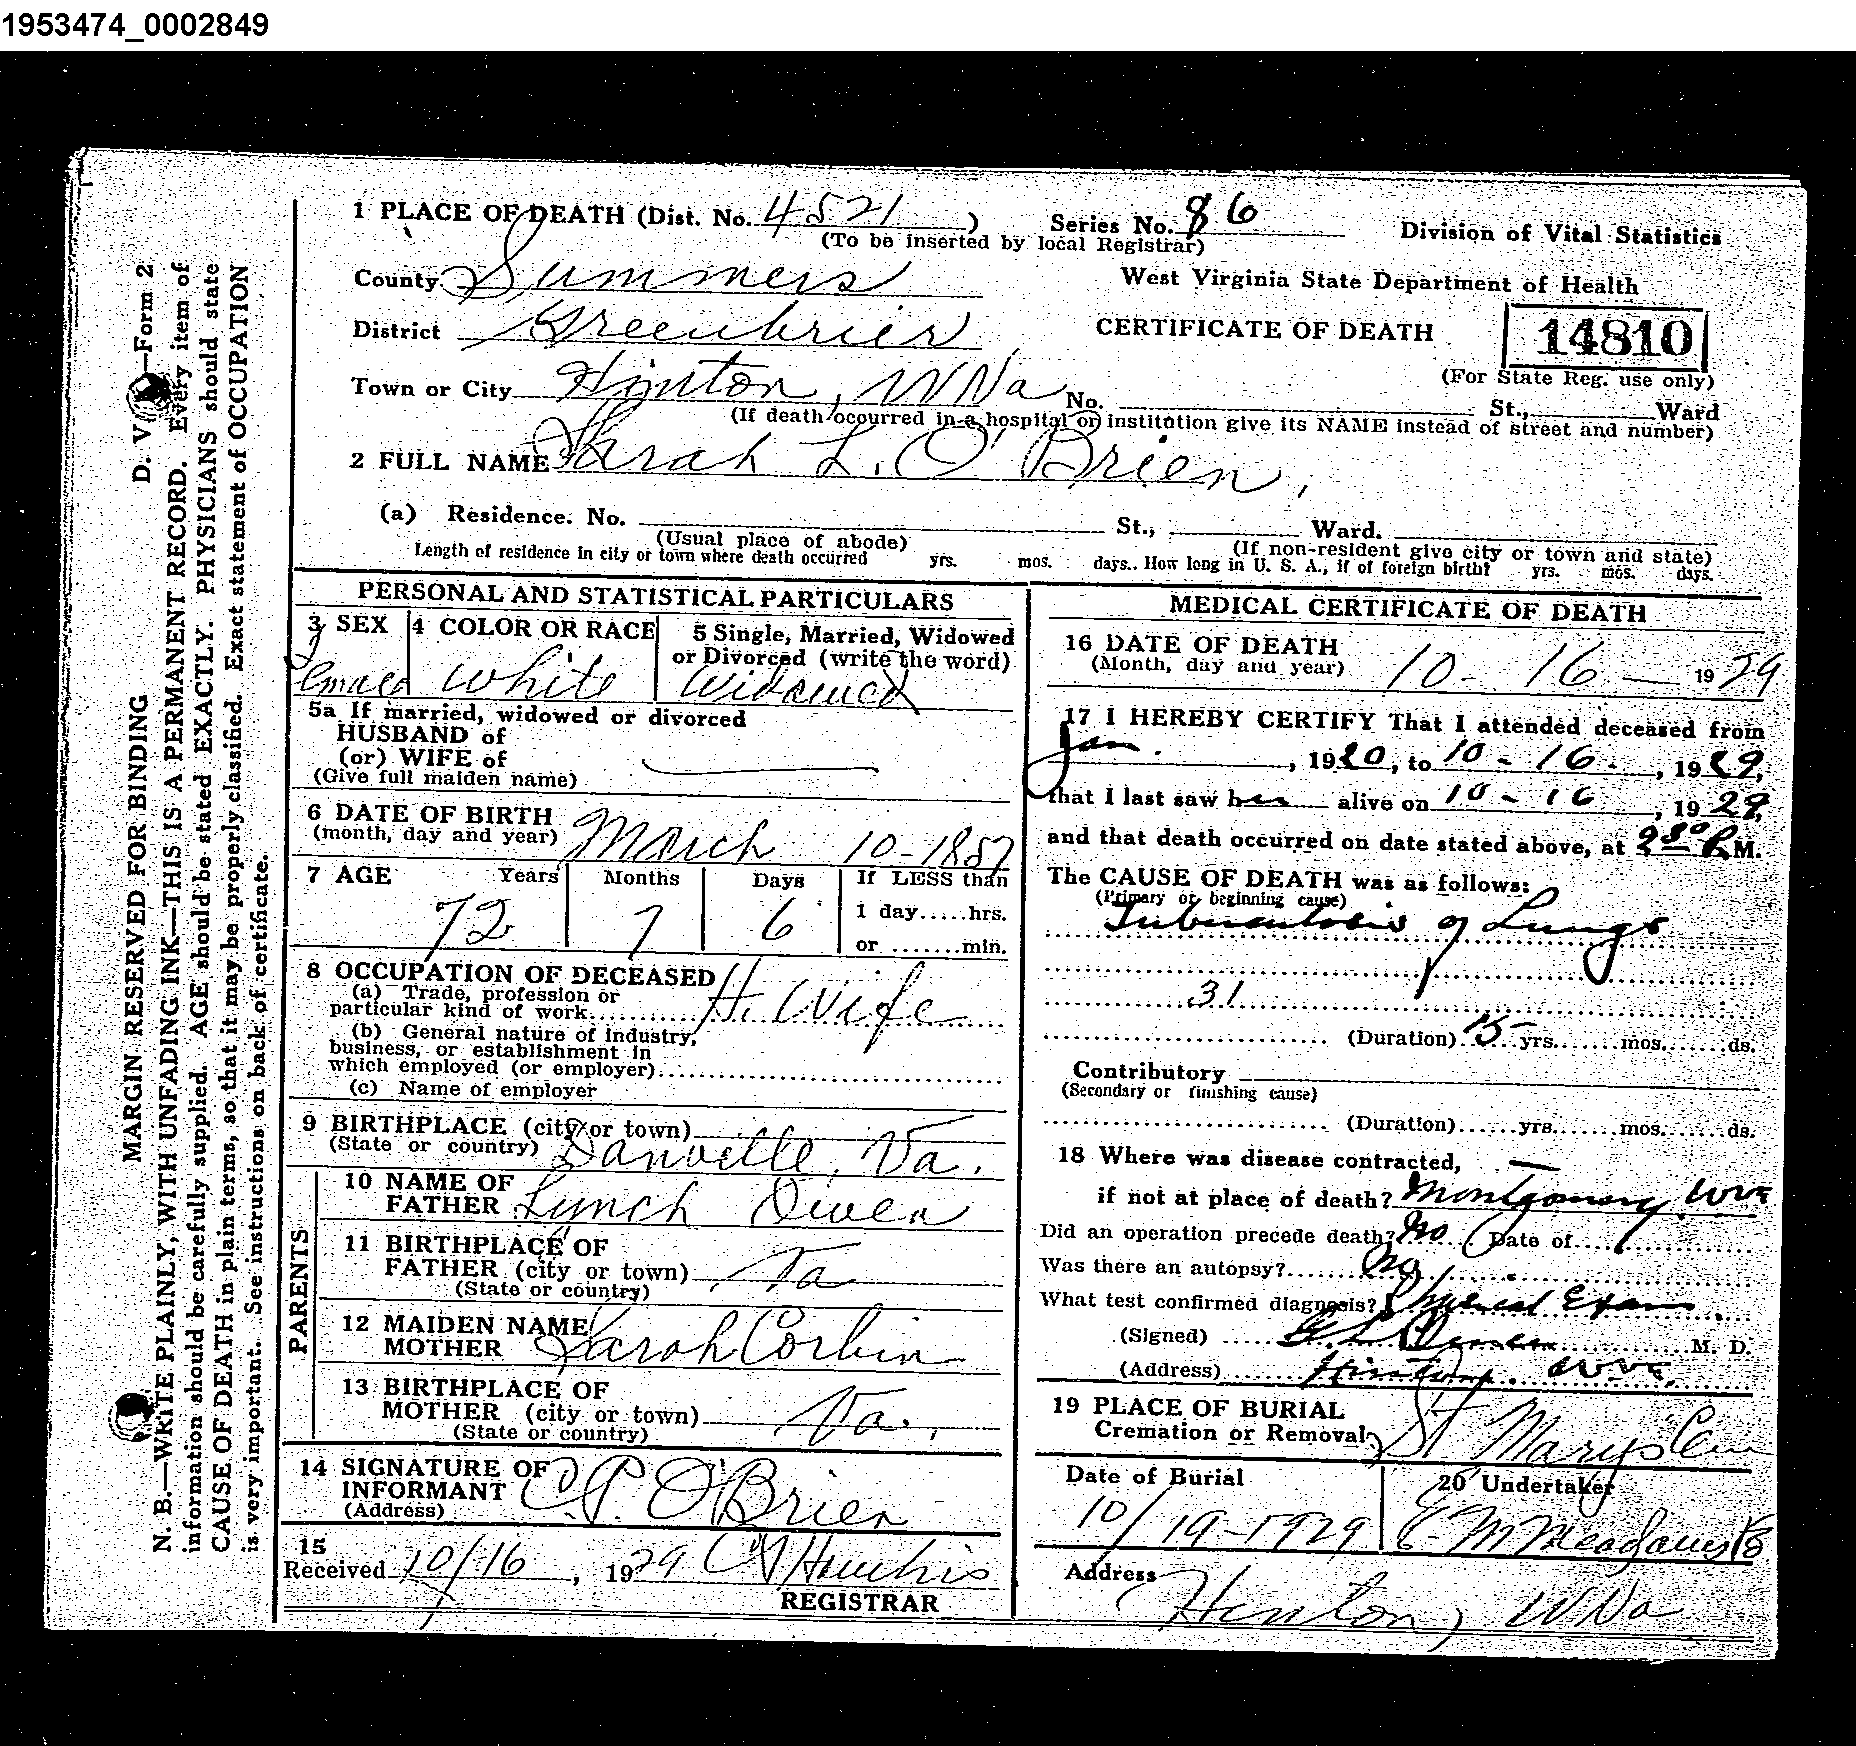 1953474_0002849
1 PLACE OF DEATH (Dist. No. 4521 ) Series No. 86 Division of Vital Statistics
(To be inserted by local Registrar)
County Summers West Virginia State Department of Health
District Greenbrier CERTIFICATE OF DEATH 14810
(For State Reg. use only)
Town or City Hinton, W Va No. St., Ward
(If death occurred in a hospital or institution give its NAME instead of street and number)
2 FULL NAME Sarah L. O'Brien,
(a) Residence. No. St., Ward.
(Usual place of abode) (If non-resident give city or town and state)
Length of residence in city or town where death occurred yrs. mos. days. How long in U. S. A., if of foreign birth? yrs. mos. days.
PERSONAL AND STATISTICAL PARTICULARS
3 SEX 4 COLOR OR RACE 5 Single, Married, Widowed
or Divorced (write the word)
Female White Widowed
5a If married, widowed or divorced
HUSBAND of
(or) WIFE of
(Give full maiden name)
6 DATE OF BIRTH
(month, day and year) March 10-1857
7 AGE Years Months Days If LESS than
72 7 6 1 day.....hrs.
or .......min.
8 OCCUPATION OF DECEASED
(a) Trade, profession or
particular kind of work H. Wife
(b) General nature of industry,
business, or establishment in
which employed (or employer)
(c) Name of employer
9 BIRTHPLACE (city or town)
(State or country) Danville, Va.
PARENTS
10 NAME OF
FATHER Lynch Owen
11 BIRTHPLACE OF
FATHER (city or town) Va
(State or country)
12 MAIDEN NAME
MOTHER Sarah Corbin
13 BIRTHPLACE OF
MOTHER (city or town) Va.
(State or country)
14 SIGNATURE OF
INFORMANT C.P. O'Brien
(Address)
15
Received 10/16, 1929
REGISTRAR
MEDICAL CERTIFICATE OF DEATH
16 DATE OF DEATH
(Month, day and year) 10 - 16 - 1929
17 I HEREBY CERTIFY That I attended deceased from
Jan. , 1920, to 10 - 16. , 1929,
that I last saw her alive on 10 - 16 , 1929,
and that death occurred on date stated above, at M.
The CAUSE OF DEATH was as follows:
(Primary or beginning cause)
Tuberculosis of Lungs
31
(Duration) 15 yrs. mos. ds.
Contributory
(Secondary or finishing cause)
(Duration) yrs. mos. ds.
18 Where was disease contracted, —
if not at place of death? Montgomery, W Va
Did an operation precede death? No Date of
Was there an autopsy? No
What test confirmed diagnosis? Physical Exam.
(Signed) M. D.
(Address) Hinton, W Va.
19 PLACE OF BURIAL
Cremation or Removal St Marys Cem
Date of Burial 20 Undertaker
10/19-1929 E M Meadows
Address
Hinton, W Va
D. V. —Form 2
MARGIN RESERVED FOR BINDING
N. B.—WRITE PLAINLY, WITH UNFADING INK—THIS IS A PERMANENT RECORD. Every item of
information should be carefully supplied. AGE should be stated EXACTLY. PHYSICIANS should state
CAUSE OF DEATH in plain terms, so that it may be properly classified. Exact statement of OCCUPATION
is very important. See instructions on back of certificate.